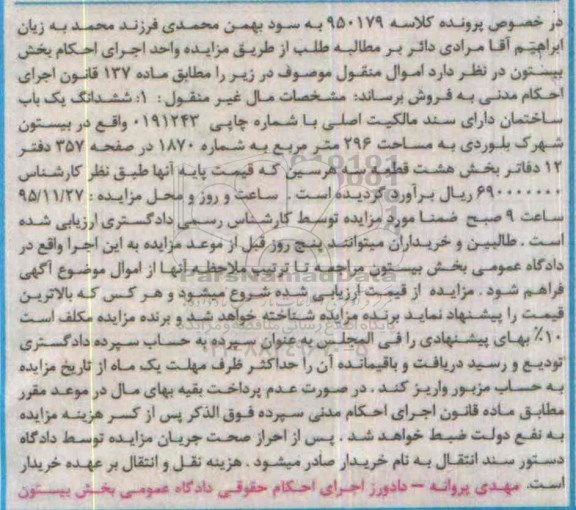 در خصوص پرونده کلاسه ۹۵۰۱۷۹ به سود بهمن محمدی فرزند محمد به زیان
ابراهیم آقا مرادی دائر بر مطالبه طلب از طریق مزایده واحد اجرای احکام بخش
بیستون در نظر دارد اموال منقول موصوف در زیر را مطابق ماده ۱۳۷ قانون اجرای
احکام مدنی به فروش برساند؛ مشخصات مال غیر منقول : ۱: ششدانگ یک باب
ساختمان دارای سند مالکیت اصلی با شماره چاپی ۰۱۹۱۲۴۳ واقع در بیستون
شهرک بلوردی به مساحت ۲۹۶ متر مربع به شماره ۱۸۷۰ در صفحه ۳۵۷ دفتر
۱۲ دفاتر بخش هشت قطعه سه هرسین که قیمت پایه آنها طبق نظر کارشناس
۶۹۰۰۰۰۰۰۰ ریال برآورد گردیده است . ساعت و روز و محل مزایده : ۹۵/۱۱/۲۷
ساعت ۹ صبح ضمنا مورد مزایده توسط کارشناس رسمی دادگستری ارزیابی شده
است . طالبین و خریداران میتوانند پنج روز قبل از موعد مزایده به این اجرا واقع در
دادگاه عمومی بخش بیستون مراجعه تا ترتیب ملاحظه آنها از اموال موضوع آگهی
فراهم شود . مزایده از قیمت ارزیابی شده شروع میشود و هر کس که بالاترین
قیمت را پیشنهاد نماید برنده مزایده شناخته خواهد شد و برنده مزایده مکلف است
۱۰٪ بهای پیشنهادی را فی المجلس به عنوان سپرده به حساب سپرده دادگستری
تودیع و رسید دریافت و باقیمانده آن را حداکثر ظرف مهلت یک ماه از تاریخ مزایده
به حساب مزبور واریز کند . در صورت عدم پرداخت بقیه بهای مال در موعد مقرر
مطابق ماده قانون اجرای احکام مدنی سپرده فوق الذکر پس از کسر هزینه مزایده
به نفع دولت ضبط خواهد شد . پس از احراز صحت جریان مزایده توسط دادگاه
دستور سند انتقال به نام خریدار صادر میشود . هزینه نقل و انتقال بر عهده خریدار
است. مهدی پروانه – دادورز اجرای احکام حقوقی دادگاه عمومی بخش بیستون